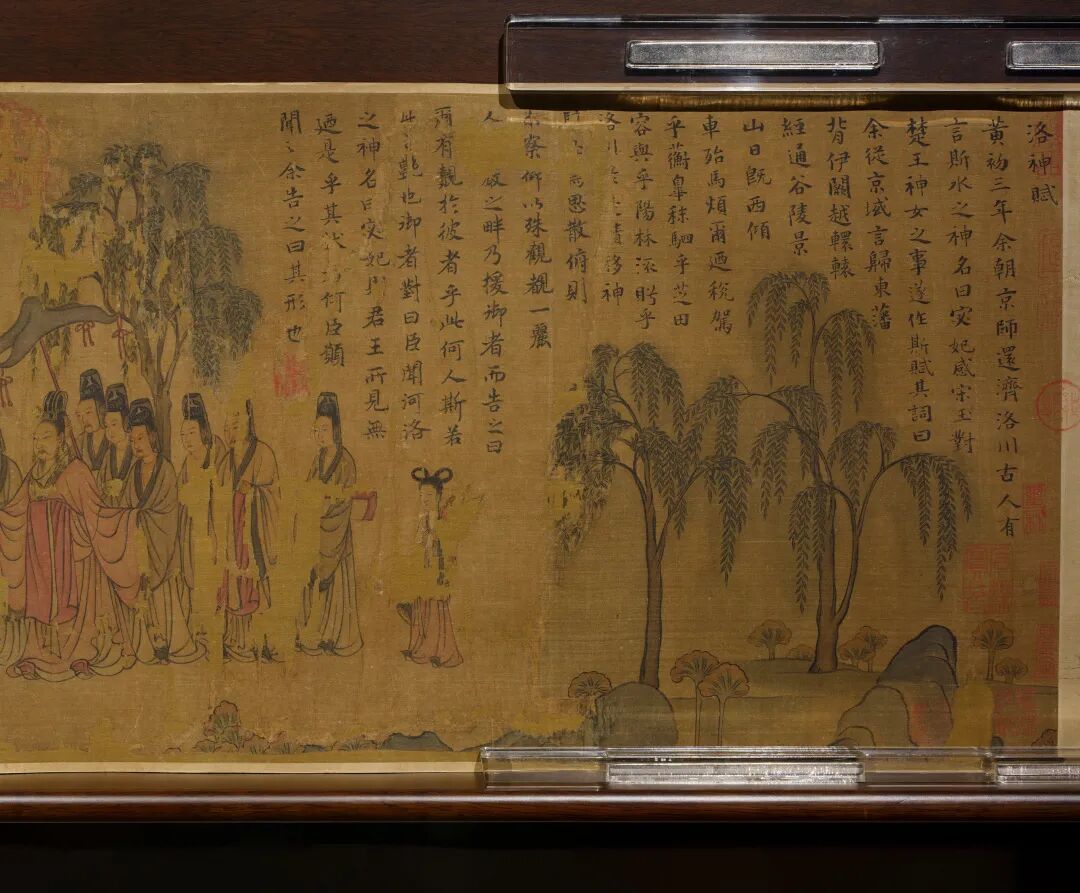 洛神賦
黃初三年余朝京師還濟洛川古人有
言斯水之神名曰宓妃感宋玉對
楚王神女之事遂作斯賦其詞曰
余從京域言歸東藩
背伊闕越轘轅
經通谷陵景
山日既西傾
車殆馬煩爾迺稅駕
乎蘅皐秣駟乎芝田
容與乎陽林流眄乎
洛川於是精移神
而思散俯則
察仰以殊觀覩一麗
人之畔乃援御者而告之曰
爾有覿於彼者乎此何人斯若
此之艷也御者對曰臣聞河洛
之神名曰宓妃君王所見無
迺是乎其狀何臣願
聞之余告之曰其形也